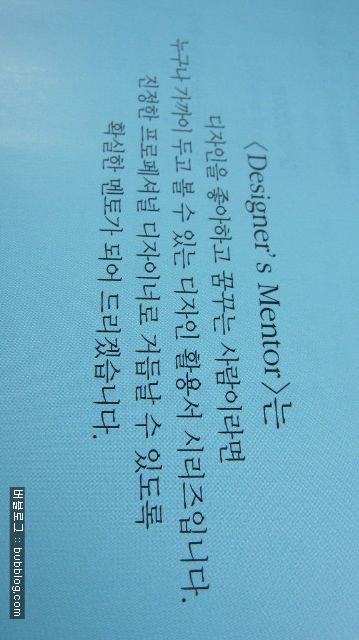 〈Designer's Mentor〉는
디자인을 좋아하고 꿈꾸는 사람이라면
누구나 가까이 두고 볼 수 있는 디자인 활용서 시리즈입니다.
진정한 프로페셔널 디자이너로 거듭날 수 있도록
확실한 멘토가 되어 드리겠습니다.
버블로그 :: bubblog.com